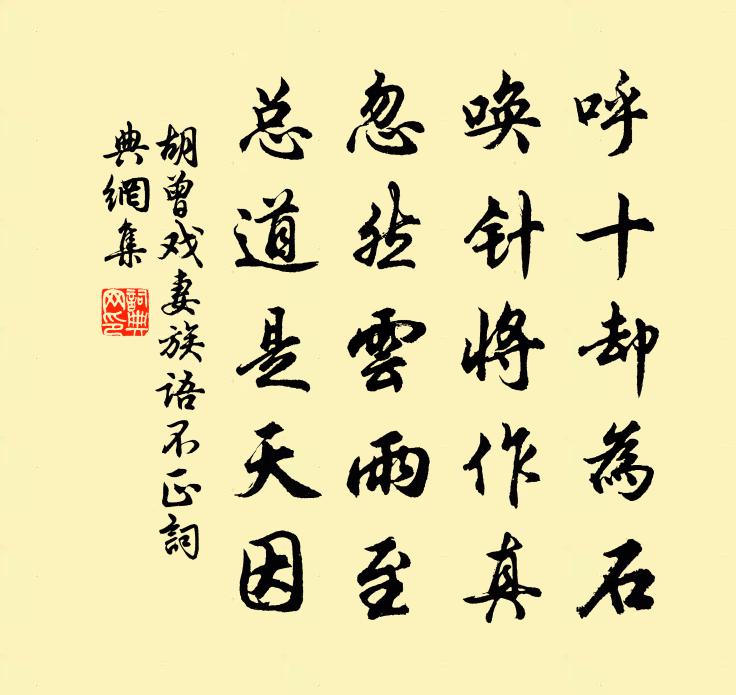 呼十却為石
唤针将作真
忽然雲雨至
总道是天因
胡曾戏妻族语不正詞
典網集
詞典
网印